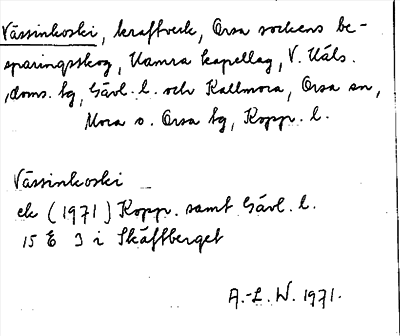 Vässinkoski, kraftverk, Orsa sockens be-
sparingsskog, Hamra kapellag, V. Häls.
doms. hg, Gävl. l. och Kallmora, Orsa sn,
Mora o. Orsa hg, Kopp. l.
Vässinkoski
ek (1971) Kopp. samt Gävl. l.
15 E 3 i Skäftberget
A.-L. W. 1971.